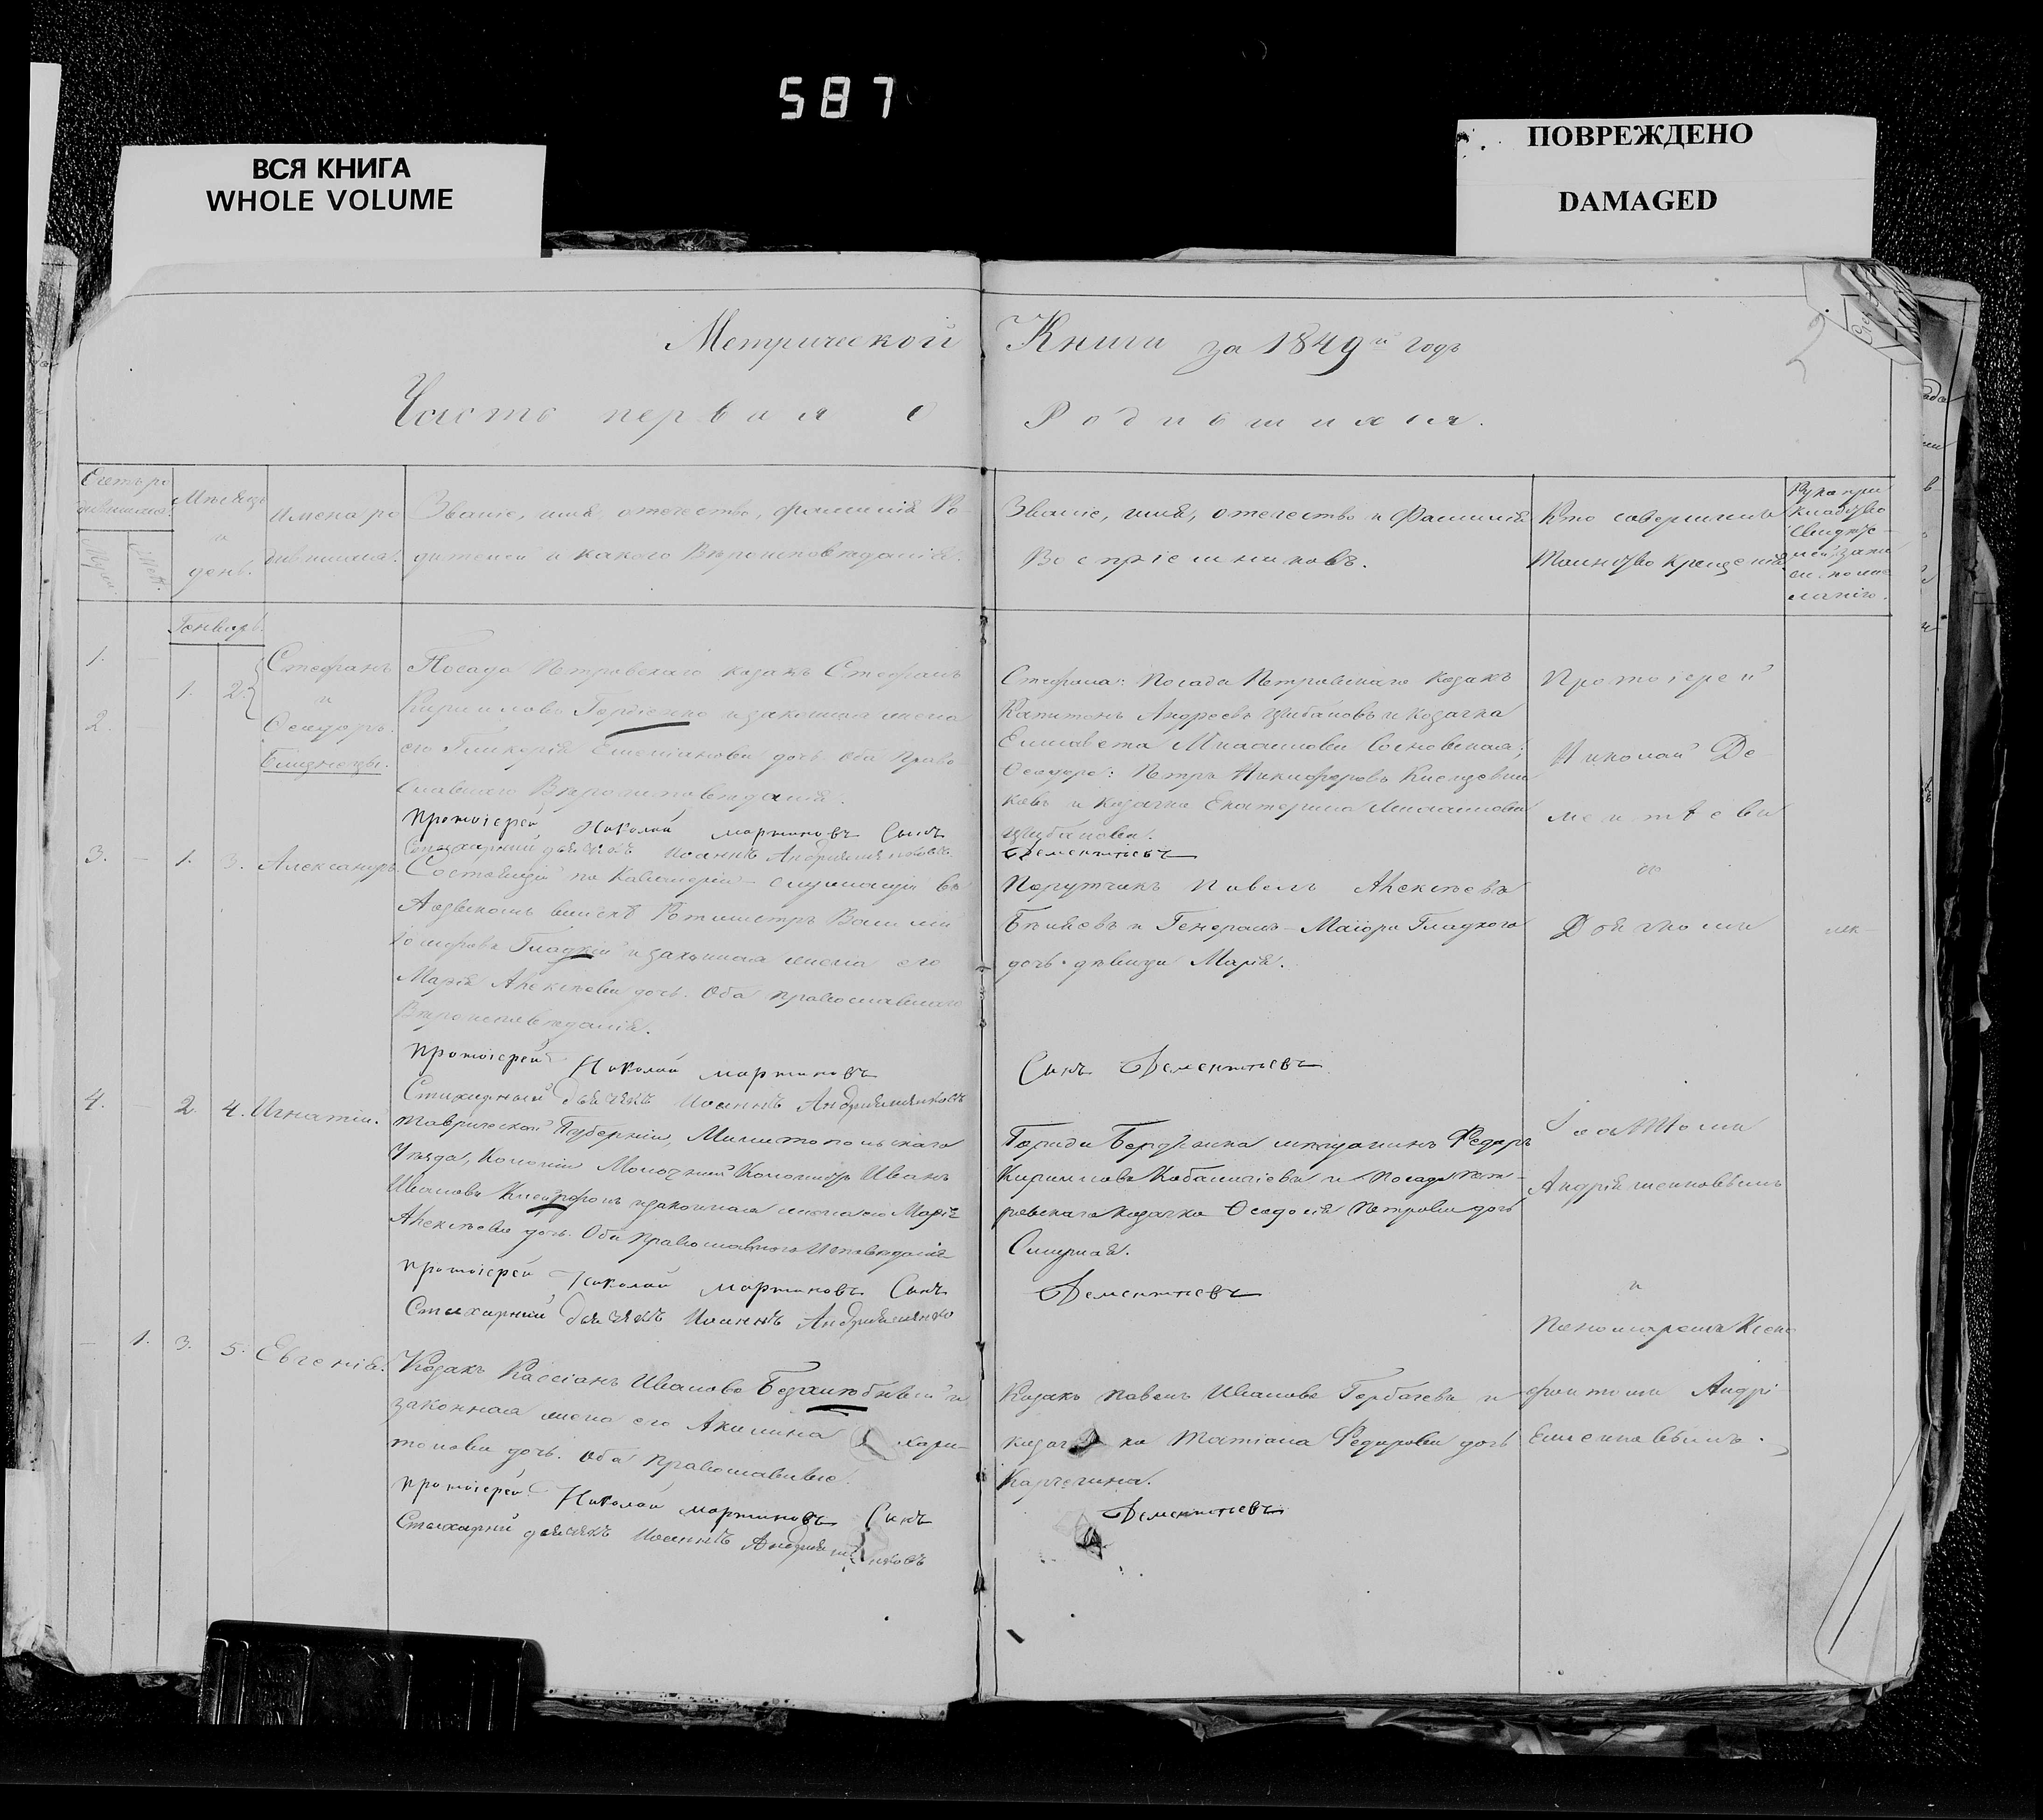 587
ВСЯ КНИГА
WHOLE VOLUME
ПОВРЕЖДЕНО
DAMAGED
Метрической Книги за 1849й годъ
Часть первая о Родившихся.
Счетъ ро
дившихся.
Муж.
Жен.
Мѣсяцъ
и
день.
Имена ро
дившихся.
Званіе, имя, отечество, фамилія Ро-
дителей и какого Вѣроисповѣданія.
Званіе, имя, отечество и Фамилія
Воспріемниковъ.
Кто совершилъ
Таинство Крещенія
Рукопри
кладство
Свидѣте-
лей записи
по же-
ланію.
Генварь.
1.
2.
1. 2.
Стефанъ
и
Ѳеодоръ
Близнецы.
Посада Петровскаго казакъ Стефанъ
Кириловъ Гордіенко и законная жена
его Гликерія Емеліанова дочь оба Право
славнаго Вѣроисповѣданія.
Протоіерей Николай мартиновъ Сынъ
Стихарный дьячекъ Иоаннъ Андріяшенковъ
Стефана: Посада Петровскаго Козакъ
Капитонъ Андреевъ Цибановъ и Козачка
Елисавета Михаилова Сосновская;
Ѳеодора: Петръ Никифоровъ
ковъ и козачка Екатерина Михаилова
Цибанова.
Дементьевъ
Протоіерей
Николай Де
ментьевъ
съ
Дьячкомъ
Іоанномъ
Андріяшенковымъ
и
Пономаремъ Ксено
фонтомъ Андрі
яшенковымъ.
3. - 1. 3. Александръ.
Состоящій по Кавалеріи служащій въ
Азовскомъ войскѣ Ротмистръ Василій
Іосифовъ Гладкій и законная жена его
Марія Алексѣева дочь. Оба православнаго
Вѣроисповѣданія.
Протоіерей Николай мартиновъ
Стихарный дьячекъ Иоаннъ Андріяшенковъ
Порутчикъ Павелъ Алексѣевъ
и Генералъ-Маіора Гладкого
дочь дѣвица Марія.
Сынъ Дементьевъ
4. 2. 4. Игнатій.
Таврической Губерніи, Мелитопольскаго
Уѣзда, Колоніи Молочной Колонистъ Иванъ
Ивановъ и законная жена его Марія
Алексѣева дочь. Оба Православного Исповѣданія
Протоіерей Николай мартиновъ Сынъ
Стихарный дьячекъ Иоаннъ Андріяшенко
Города Бердянска мѣщанинъ Федоръ
Кириловъ и Посада Пет-
ровскаго козачка Ѳеодосія Петрова дочь
Дементьевъ
- 1. 3. 5. Евгенія.
Козакъ Кассіанъ Ивановъ Безлюбный и
законная жена его Акилина Хари-
тонова дочь. Оба Православные.
Протоіерей Николай мартиновъ Сынъ
Стихарный дьячекъ Иоаннъ Андріяшенковъ
Козакъ Павелъ Ивановъ Горбачевъ и
козачка Татіана Федорова дочь
Дементьевъ